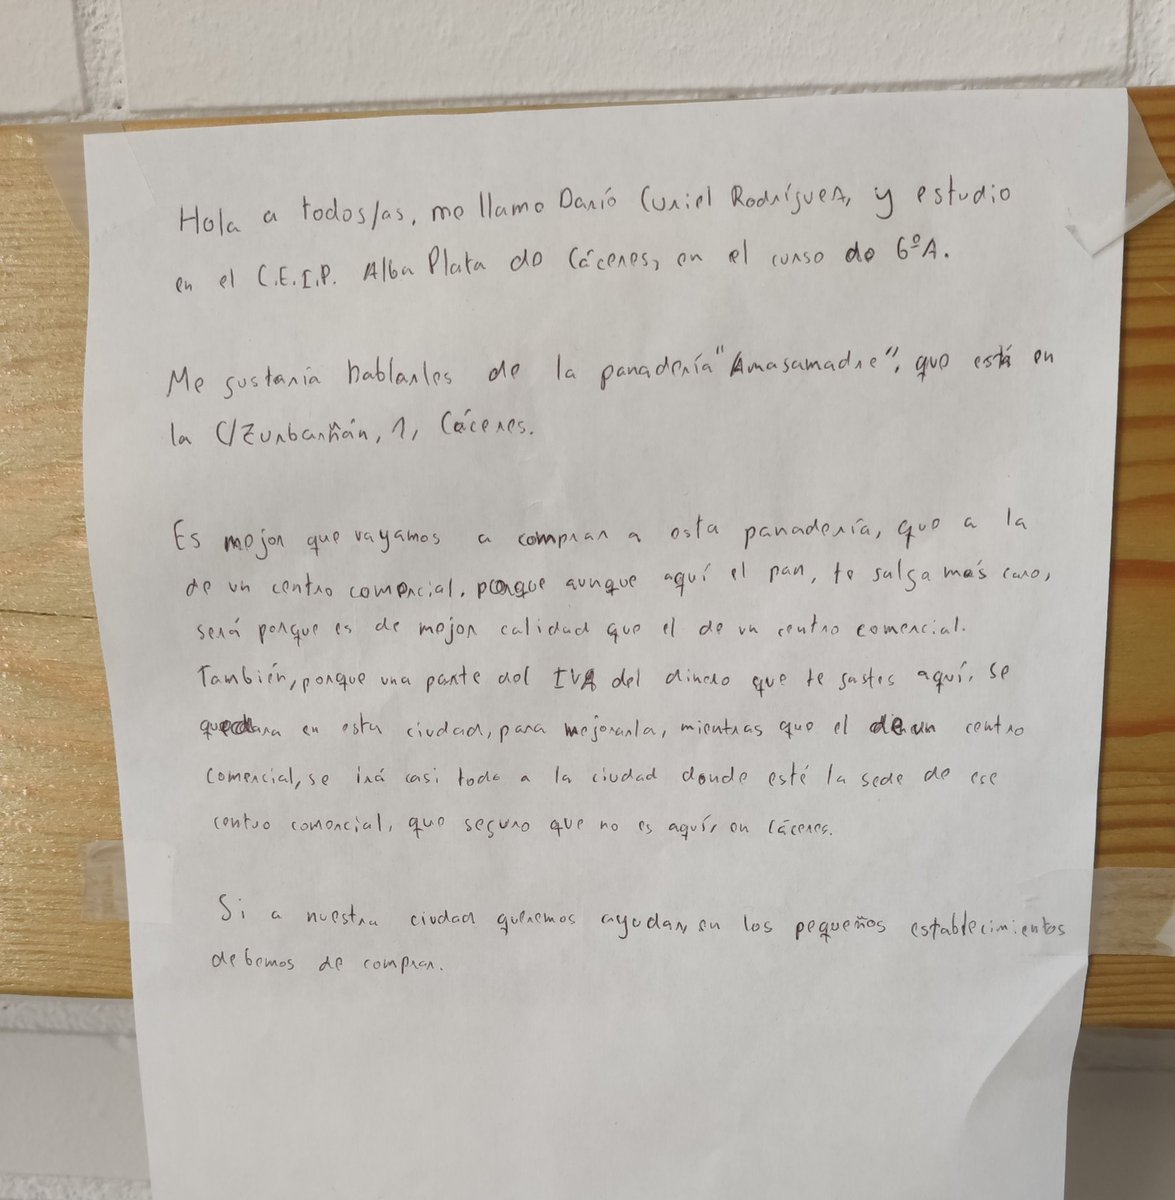 Hola a todos/as, me llamo Darío Curiel Rodríguez, y estudio
en el C.E.I.P. Alba Plata de Cáceres, en el curso de 6ºA.
Me gustaría hablarles de la panadería "Amasamadre", que está en
la C/Zurbarñán, 1, Cáceres.
Es mejor que vayamos a comprar a esta panadería, que a la
de un centro comercial, porque aunque aquí el pan, te salga más caro,
será porque es de mejor calidad que el de un centro comercial.
También, porque una parte del IVA del dinero que te gastes aquí, se
quedara en esta ciudad, para mejorarla, mientras que el de un centro
comercial, se irá casi todo a la ciudad donde esté la sede de ese
centro comercial, que seguro que no es aquí, en Cáceres.
Si a nuestra ciudad queremos ayudar, en los pequeños establecimientos
debemos de comprar.